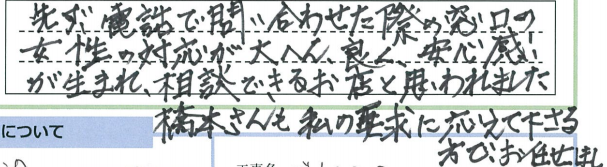 先ず電話で問い合わせた際の窓口の
女性の対応が大へん良く、安心感い
が生まれ、相談できるお店と思われました
橋本さんも私の要求に応えて下さる
方でお任せ
について